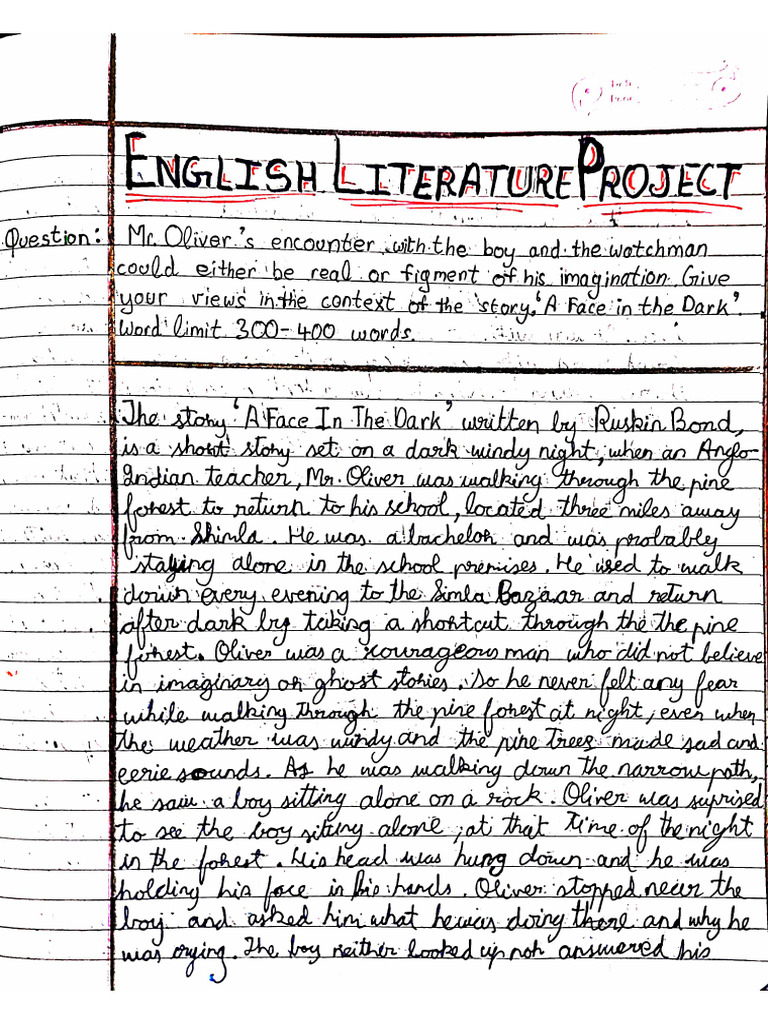 ENGLISH LITERATURE PROJECT
Question: Mr. Oliver's encounter with the boy and the watchman
could either be real or figment of his imagination. Give
your views in the context of the story. 'A Face in the Dark'.
Word limit 300-400 words.
The story 'A Face In The Dark' written by Ruskin Bond,
is a short story set on a dark windy night, when an Anglo-
Indian teacher, Mr. Oliver was walking through the pine
forest to return to his school, located three miles away
from Shimla. He was a bachelor and was probably
staying alone in the school premises. He used to walk
down every evening to the Simla Bazaar and return
after dark by taking a shortcut through the the pine
forest. Oliver was a courageous man who did not believe
in imaginary or ghost stories. So he never felt any fear
while walking through the pine forest at night, even when
the weather was windy and the pine trees made sad and
eerie sounds. As he was walking down the narrow path,
he saw a boy sitting alone on a rock. Oliver was suprised
to see the boy sitting alone, at that time of the night
in the forest. His head was hung down and he was
holding his face in his hands. Oliver stopped near the
boy and asked him what he was doing there and why he
was crying. The boy neither looked up nor answered his